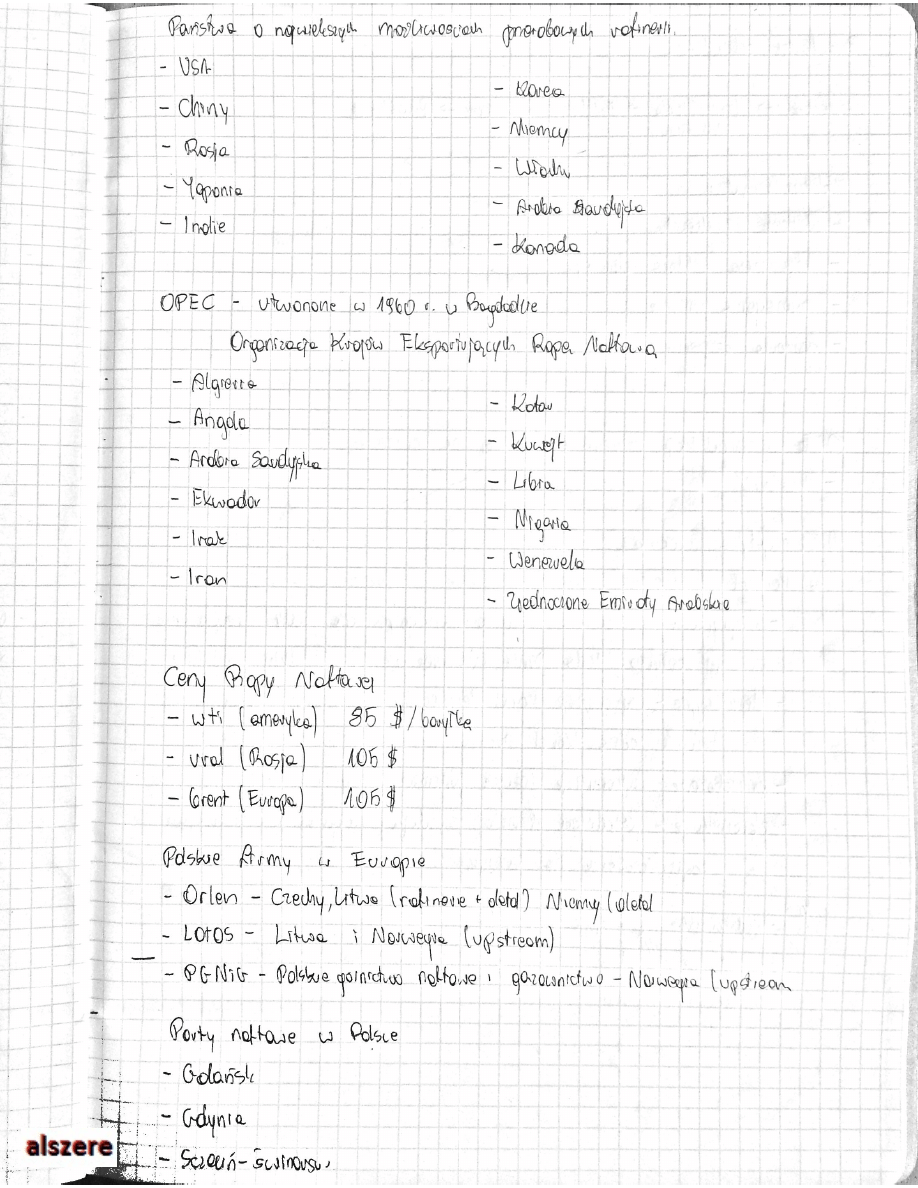 Państwa o największych możliwościach przerobowych rafinerii.
- USA
- Chiny
- Rosja
- Japonia
- Indie
- Korea
- Niemcy
- Włochy
- Arabia Saudyjska
- Kanada
OPEC - utworzone w 1960 r. w Bagdadzie
Organizacja Krajów Eksportujących Ropę Naftową
- Algieria
- Angola
- Arabia Saudyjska
- Ekwador
- Irak
- Iran
- Katar
- Kuwejt
- Libia
- Nigeria
- Wenezuela
- Zjednoczone Emiraty Arabskie
Ceny Ropy Naftowej
- wti (ameryka) 85 $/baryłkę
- ural (Rosja) 105 $
- brent (Europa) 105 $
Polskie firmy w Europie
- Orlen - Czechy, Litwa (rafinerie + detal) Niemcy (detal
- LOTOS - Litwa i Norwegia (upstream)
- PGNiG - Polskie górnictwo naftowe i gazownictwo - Norwegia (upstream
Porty naftowe w Polsce
- Gdańsk
- Gdynia
alszere